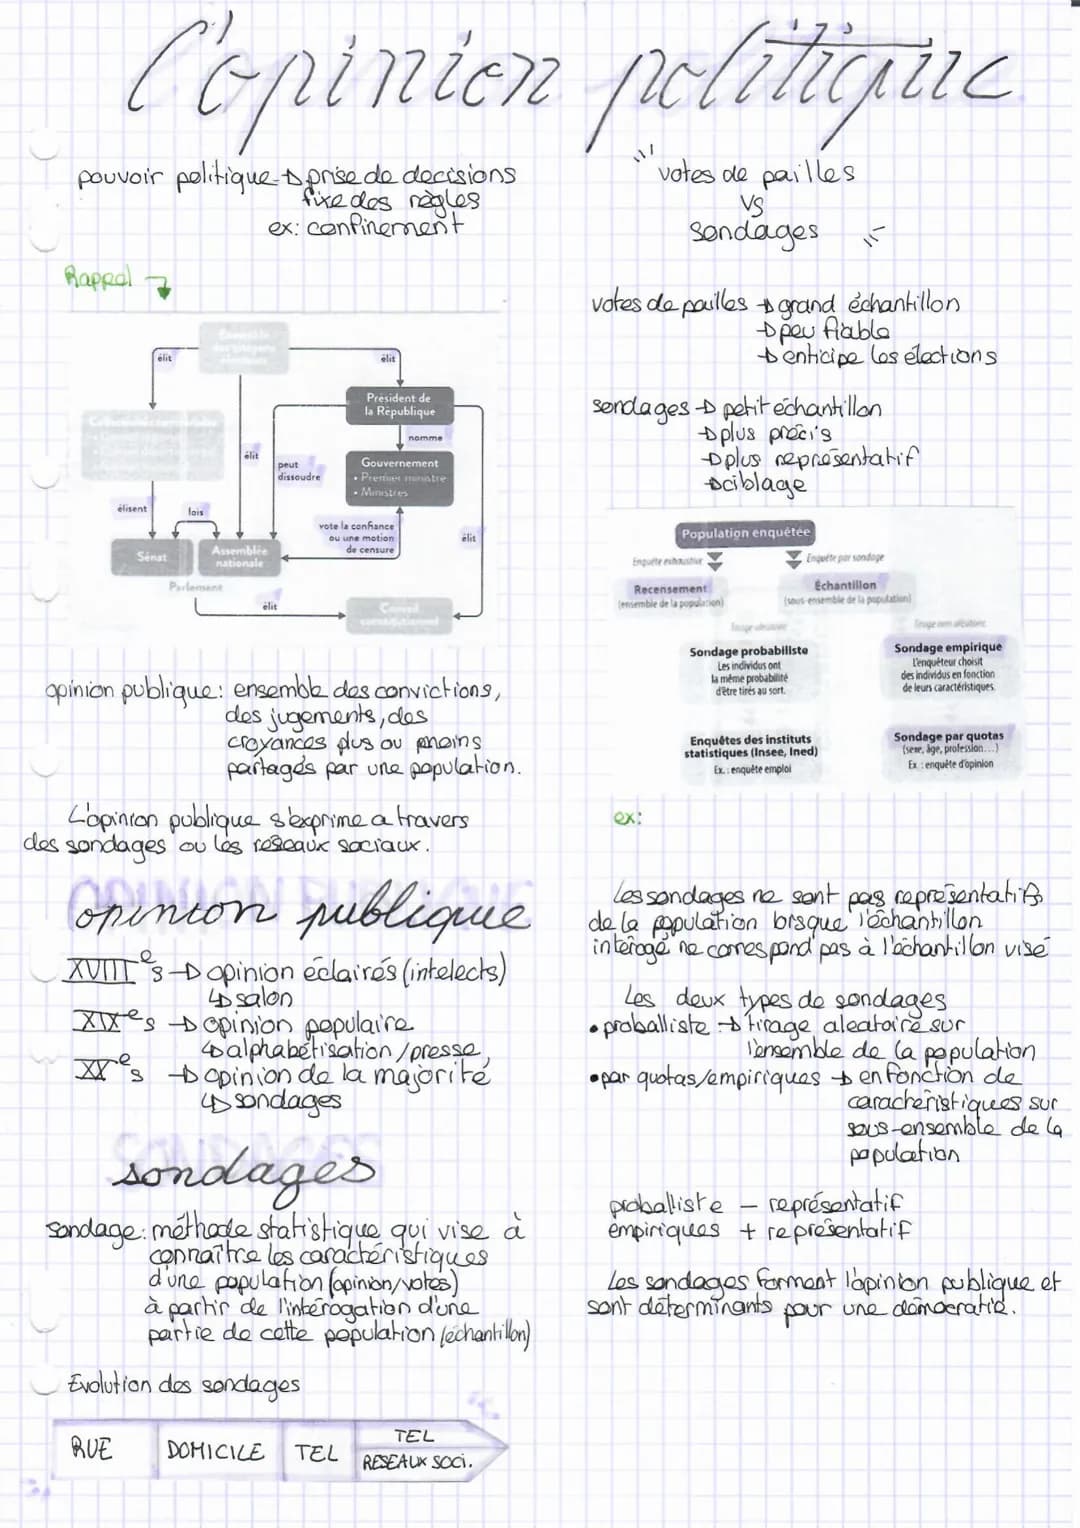 L'opinion politique
pouvoir politique → prise de decisions
fixe des règles
ex: confinement
Rappel
élit
élit
Président de
la République
nomme
élit
peut
dissoudre
Gouvernement
• Premier ministre
• Ministres
élisent
lois
vote la confiance
ou une motion
de censure
élit
Sénat
Assemblée
nationale
Parlement
élit
Conseil
constitutionnel
opinion publique: ensemble des convictions,
des jugements, des
croyances plus ou moins
partagés par une population.
L'opinion publique s'exprime a travers
des sondages ou les reseaux sociaux.
OPINION PUBLIQUE
opinion publique
XVIIIe s → opinion éclairés (intelects)
↳ salon
XIXe s → opinion populaire
↳ alphabétisation/presse
XXe s → opinion de la majorité
↳ sondages
SONDAGES
sondages
sondage: méthode statistique qui vise à
connaître les caractéristiques
d'une population (opinion/votes)
à partir de l'intérogation d'une
partie de cette population (échantillon)
Evolution des sondages
RUE
DOMICILE
TEL
TEL
RESEAUX SOCI.
votes de pailles
VS
sondages
votes de pailles → grand échantillon
→ peu fiable
→ enticipe les élections
sondages → petit échantillon
→ plus précis
→ plus représentatif
→ ciblage
Population enquêtée
Enquête exhaustive
Enquête par sondage
Recensement
(ensemble de la population)
Échantillon
(sous-ensemble de la population)
Tirage aléatoire
Tirage non aléatoire
Sondage probabiliste
Les individus ont
la même probabilité
d'être tirés au sort.
Sondage empirique
L'enquêteur choisit
des individus en fonction
de leurs caractéristiques.
Enquêtes des instituts
statistiques (Insee, Ined)
Ex. : enquête emploi
Sondage par quotas
(sexe, âge, profession...)
Ex : enquête d'opinion
ex:
Les sondages ne sont pas représentatifs
de la population lorsque l'échantillon
intérogé ne correspond pas à l'échantillon visé
Les deux types de sondages
• proballiste → tirage aleatoire sur
l'ensemble de la population
• par quotas/empiriques → en fonction de
caractéristiques sur
sous-ensemble de la
population
proballiste – représentatif
empiriques + représentatif
Les sondages forment l'opinion publique et
sont déterminants pour une démocratie.